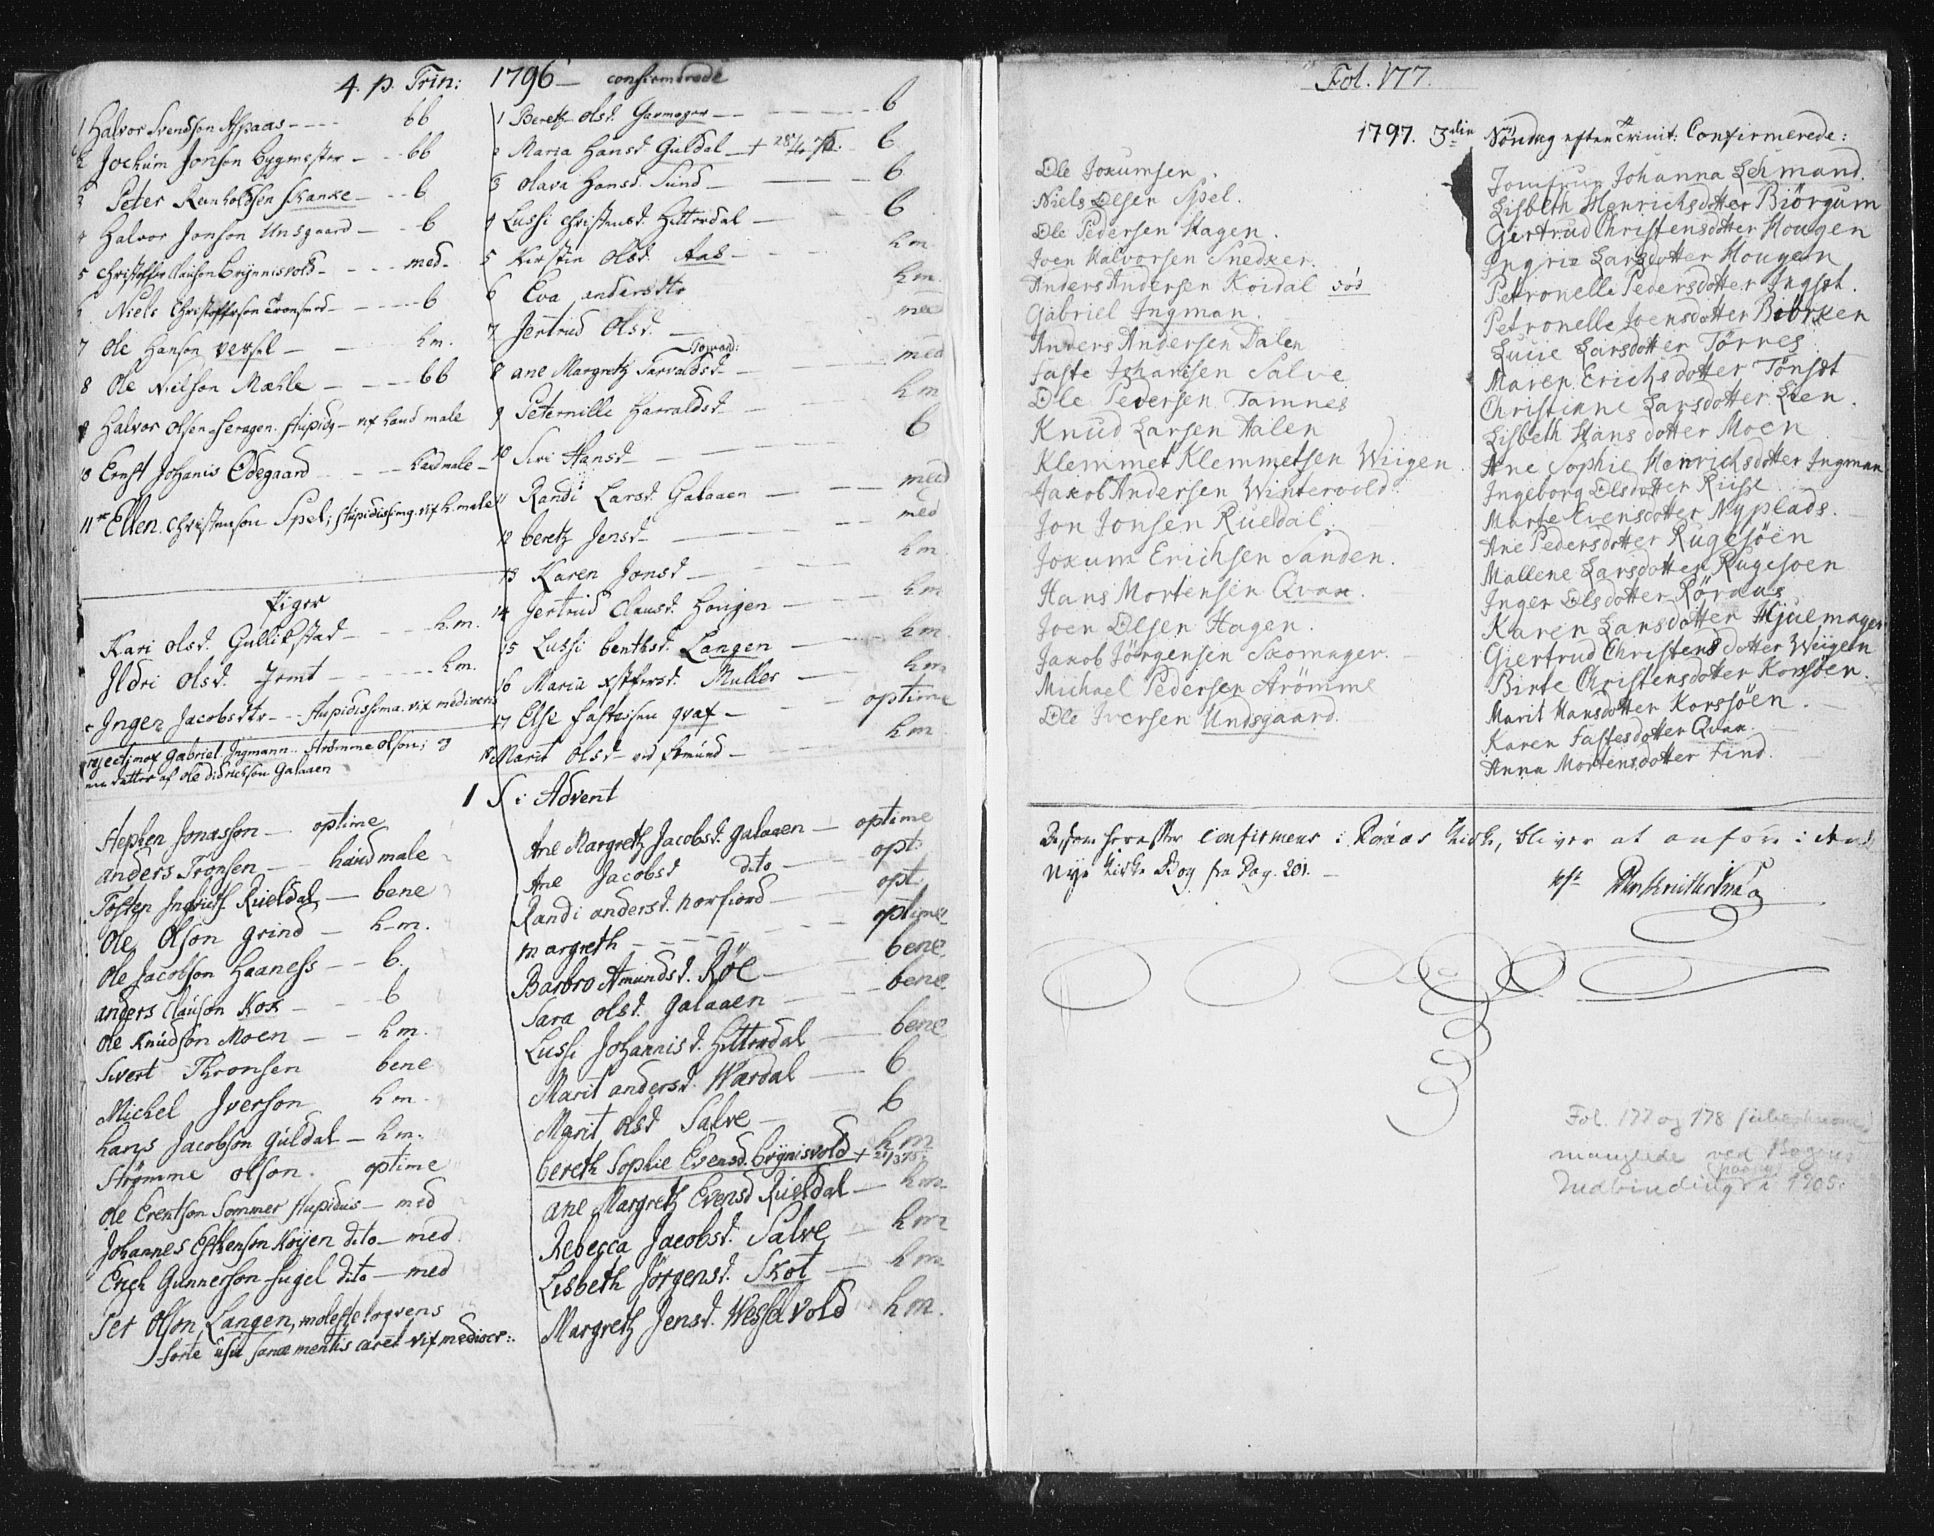 4. p. Trin: 1796 confirmerede
1 Halvor Svendson Aspaas - bb
2 Jochum Jonson bygmester - bb
3 Peter Reinholdsen Skanke - b
4 Halvor Jonson Unsgaard - b
5 Christopher Clauson brynnisvold - med
6 Niels Christofferson Tronsmed - b
7 Ole Hanson vexsel - hm.
8 Ole Nielson Mæhle - bb
9 Halvor Olsen stupidus - vix haud male
10 Ernst Johannis Ødegaard - haud male
11 Ellen Christenson Spel; stupidissimg. vix h. male
Piger
Kari Olsd. Gullikstad - h.m.
Ildri Olsd. - h.m.
Inger Jacobsdtr - stupidissima. vix mediocris
rejecti mox Gabriel Ingmann. Strömme Olson; og
en datter af Ole Didrichson Galaaen
1 Beret Olsd. Garmager - b
2 Maria Hansd. Guldal - + b
3 Olava Hansd. Sund - b
4 Lussi Christensd. Hitterdal - b
5 Kirstin Olsd. Aas - h.m.
6 Eva andersdtr h.m.
7 Jertrud Olsd. - med
8 ane Margreth Tarvaldsd. - med
9 Peternille Harraldsd. - h.m.
10 Siri Hansd. - b
11 Randi Larsd. Galaaen - med
12 bereth Jensd. - med
13 Karen Jonsd. - h.m.
14 Gertrud Clausd. Hougen - h.m.
15 Lussi benthsd. Langen - h.m.
16 Maria xstfersd. Muller - h.m.
17 Else fastesen graf - optime
18 Marit Olsd. ved femund - h.m.
1 S i Advent
Stephen Jonasson - optime
anders Tronsen - haud male
Tosten Rueldal - bene
Ole Olson grind - h.m.
Ole Jacobson Haaness - b.
anders Clauson Kox - b
Ole Knudson Moen - h.m.
Sivert Thronsen bene
Michel Iverson h.m.
hans Jacobson Guldal - h.m.
Strømme Olson. optime
Ole Erentson Sommer stupidus - med
Johannes Estenson Kóÿen dito - med
Erich Gunnerson fugel dito - med
Per Olson Langen, moleste loqvens
forte usu sanæ mentis caret vix mediocr:.
Ane Margreth Jacobsd. galaaen - optime
Ane Jacobsd dito - opt.
Randi andersd. Norfiord - opt.
margreth - optime
Barbro Amundsd. Røe - bene
Sara Olsd. galaaen - bene
Lussi Johannisd. Hitterdal - bene
Marit andersd. Wærdal - b
Marit Olsd Salve - b
bereth Sophie Evensd. brÿnisvold + h m
ane Margreth Evensd Rueldal - h m
Rebecca Jacobsd. Salve - h m
Lisbeth Jörgensd. Skot - h m
Margreth Jensd. Wessel vold h m.
Fol. 177.
1797. 3die Søndag efter Trinit: Confirmerede:
Ole Joxumsen.
Niels Olsen Spel.
Ole Pedersen Hagen.
Joen Halvorsen Snedker
Anders Andersen Koidal død
Gabriel Ingman.
Anders Andersen Dalen
Faste Johansen Salve
Ole Pedersen Tamnes
Knud Larsen Aalen
Klemmet Klemmetsen Wiigen
Jakob Andersen Wintervold.
Jon Jonsen Rueldal.
Joxum Erichsen Sanden.
Hans Mortensen Qvax.
Joen Olsen Hagen.
Jakob Jörgensen Skomager.
Michael Pedersen Strömme
Ole Iversen Undsgaard.
Jomfrue Johanna Lehmand.
Lisbeth Henrichsdotter Biörgum
Giertrud Christensdotter Hougen
Ingri Larsdotter Hougen
Petronelle Pedersdotter Ingset.
Petronelle Joensdotter Biörken
Lucie Larsdotter Törres
Maren Erichsdotter Tönset
Christiane Larsdotter Lien.
Lisbeth Hansdotter Moen
Ane Sophie Henrichsdotter Ingman
Ingeborg Olsdotter Riise
Marte Evensdotter Nyplads.
Ane Pedersdotter Rugesöen
Mallene Larsdotter Rugesöen
Inger Olsdotter Röraas
Karen Larsdotter Hjuemager
Giertrud Christensdotter Wiigeln
Birte Christensdotter Korssöen.
Marit Hansdotter Korssöen.
Karen Fastesdotter Qvax.
Anna Mortensdotter Find.
De som herefter confirmeres i Röraas Kirke, bliver at anföre i den
Nye Kirke Bog fra Pag. 201.
Fol. 177 og 178
manglede ved Bogens
(paany)
Indbinding i 1905.